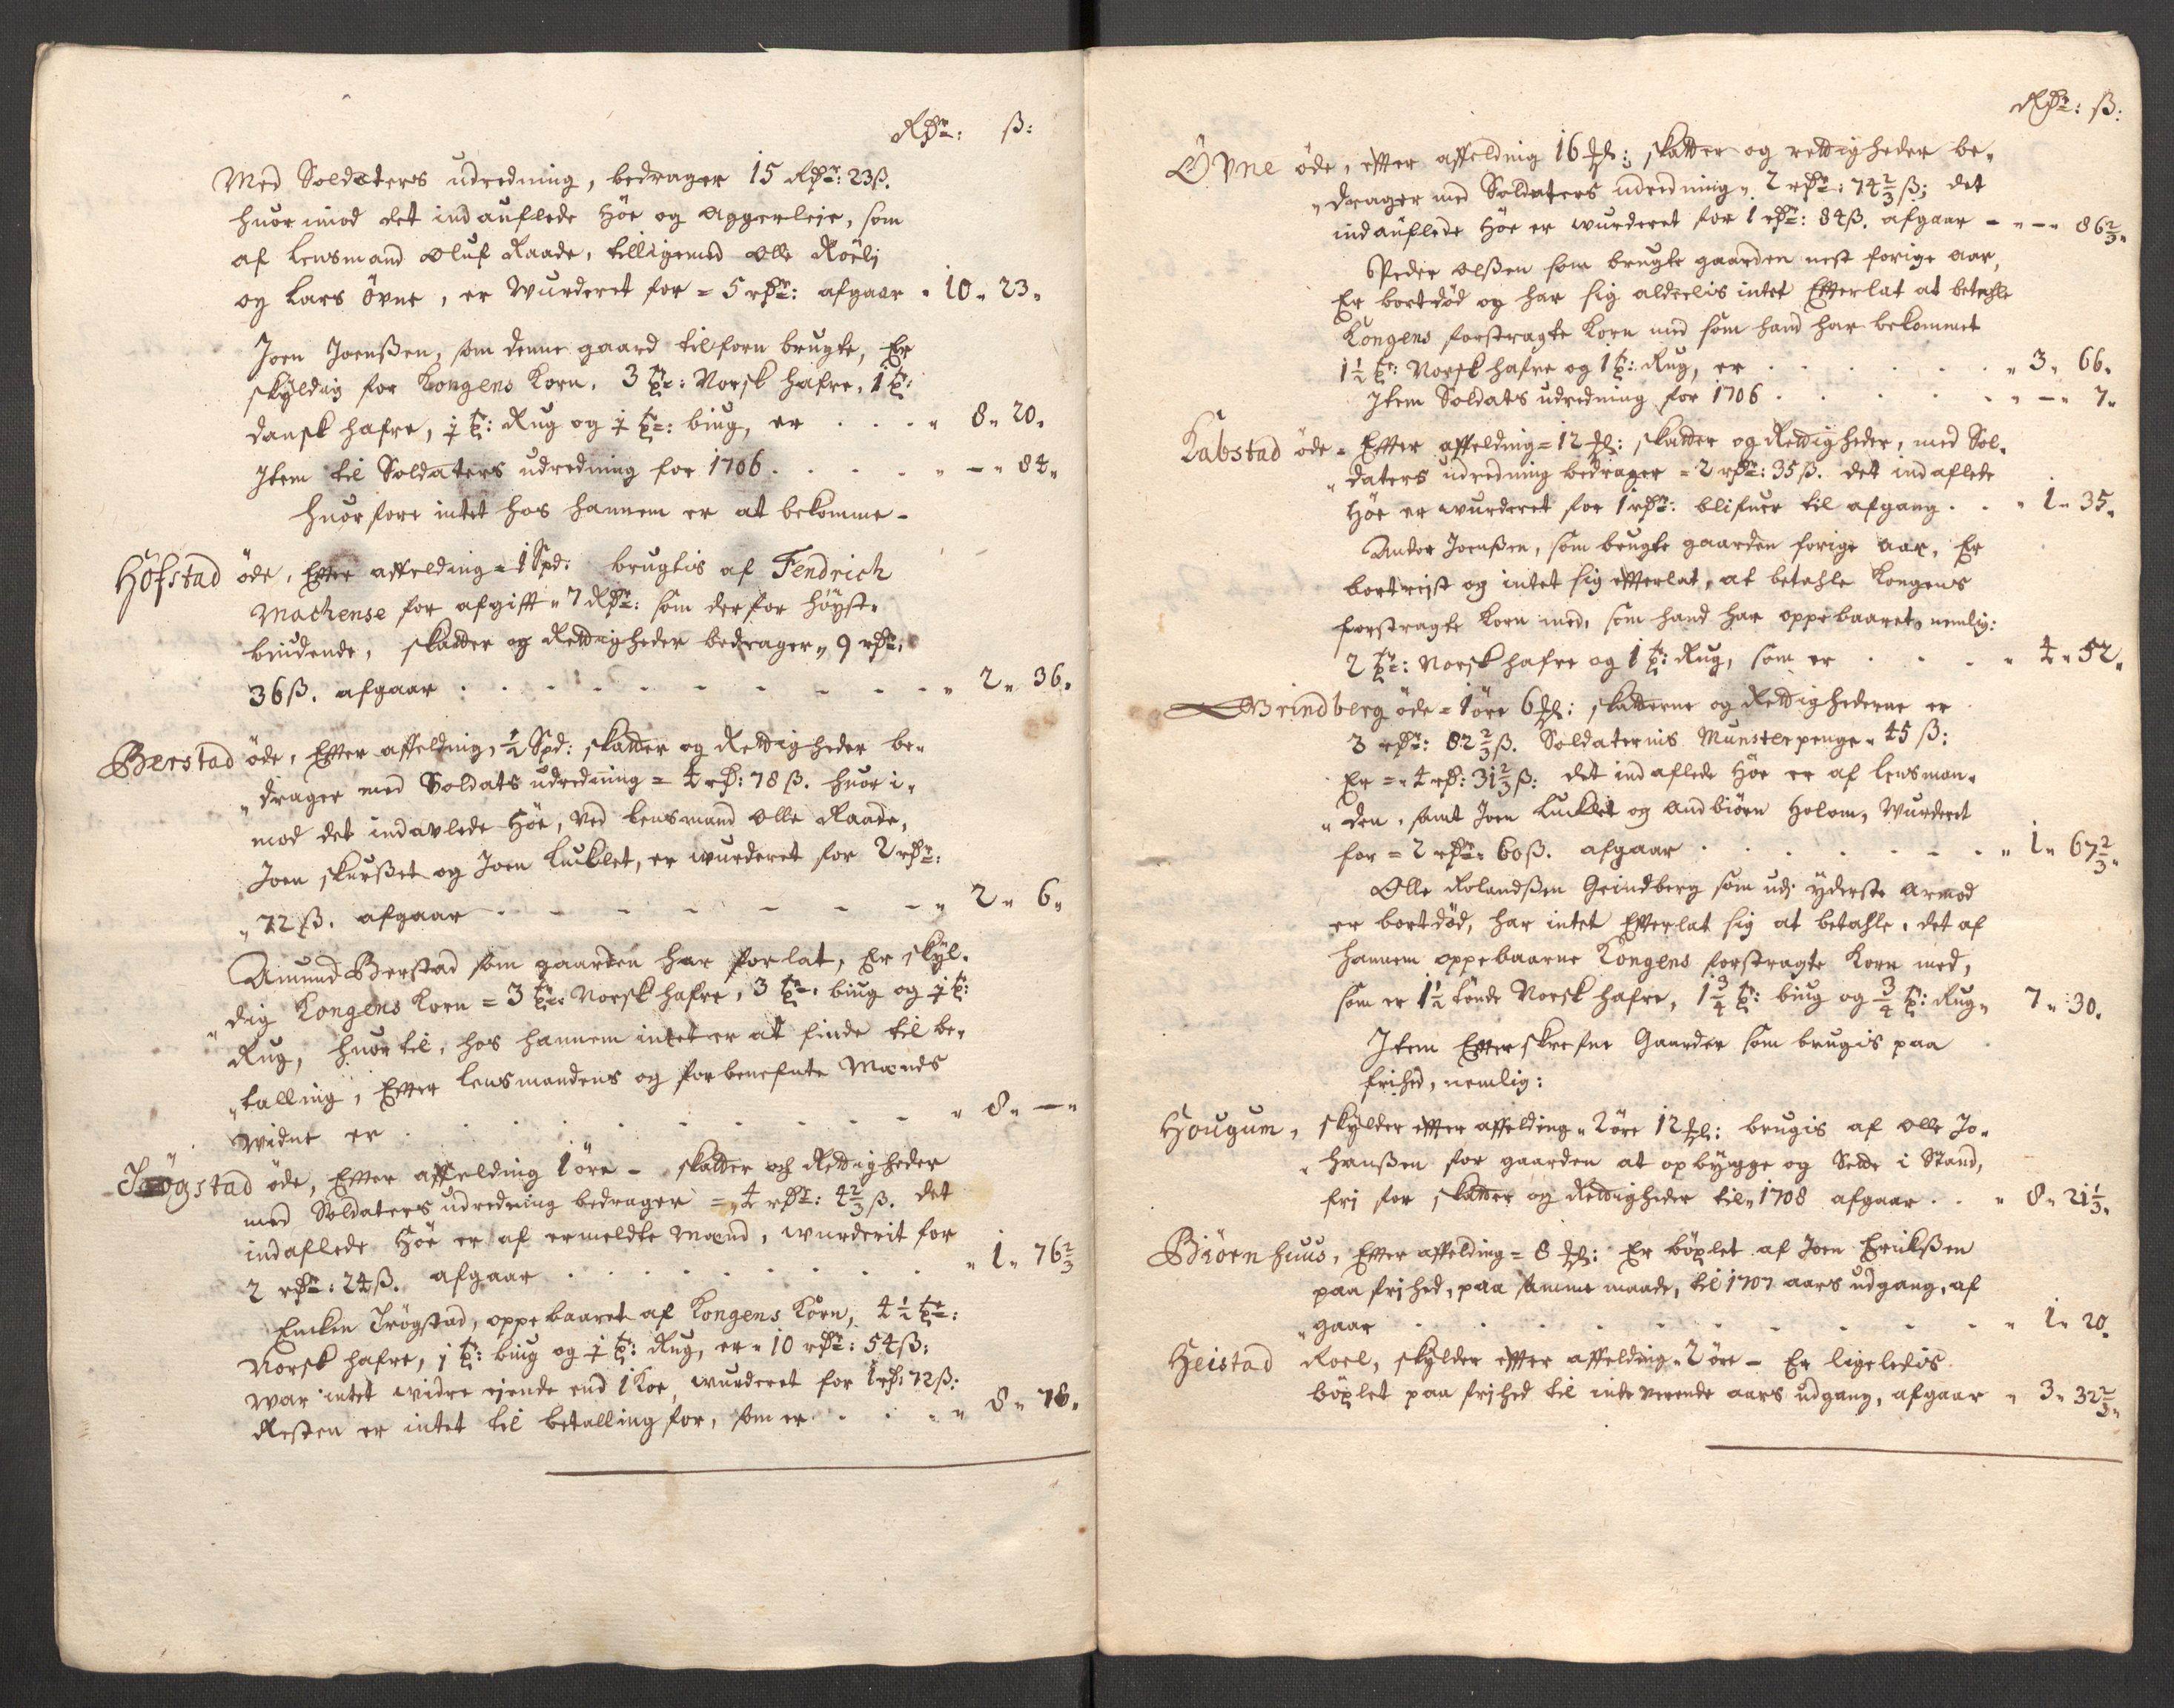 Rdr: ß:
Med Soldaters udredning, bedrager 15 Rdr: 23ß.
huor imod det indauflede Höe og aggerleje, som
af Lensmand Oluf Raade, tilligemed Olle Röeli
og Lars Övne, er Wurderet for = 5 rdr: afgaar " 10 " 23 "
Joen Joenßen, som denne gaard tilforn brugte, Er
skyldig for Kongens Korn. 3 tr: Norsk hafre, 1 t:
dansk hafre, 1 t: Rug og 1 t: biug, er . . . " 8 " 20 "
Item til Soldaters udredning for 1706 . . . . " — " 84 "
huorfore intet hos hannem er at bekomme -
Höfstad öde, Efter affelding = 1 Spd: brugtis af Fendrich
Machense for afgift " 7 Rdr: som der for höyst-
biudende, skatter og Rettigheder bedrager " 9 rdr:
36 ß. afgaar . . . . . . . . . " 2 " 36 "
Berstad öde, Efter affelding, ½ Spd: skatter og Rettigheder be-
" drager med Soldats udredning = 4 rd: 78 ß. huor i-
mod det indavlede Höe, Ved Lensmand Olle Raade,
Joen skurßet og Joen Lucklet, er wurderet for 2 rdr:
" 72 ß. afgaar - - - - - - - " 2 " 6 "
Amund Berstad som gaarden har forlat, Er skyl-
" dig Kongens Korn = 3 tr: Norsk hafre, 3 tr: biug og 1 t:
Rug, huortil, hos hannem intet er at finde til be-
" talling, Efter Lensmandens og forbenefnte Mænds
Widne er . . . . . . . . . " 8 " — "
Trögstad öde, Efter affelding 1 öre - skatter och Rettigheder
med Soldaters udredning bedrager = " 4 rdr: 4⅔ ß. det
indaflede Höe er af ermeldte Mænd, wurderit for
2 rdr: 24 ß. afgaar . . . . . . . . " 1 " 76⅔
Encken Trögstad, oppebaaret af Kongens Korn, 4½ tr:
Norsk hafre, 1 t: biug og 1 t: Rug, er " 10 rdr: 54 ß:
war intet widre ejende end 1 Koe, wurderet for 1 rd: 72 ß:
Resten er intet til betalling for, som er . . . " 8 " 78 "
Rdr: ß:
Övne öde, efter affelding 16 : skatter og rettigheder be-
" drager med Soldaters udredning " 2 rdr: 74⅔ ß; det
indauflede Höe er wurderet for 1 rdr: 84 ß. afgaar - " — " 86⅔ "
Peder Olßen som brugte gaarden nest forige aar,
Er bortdöd og har sig aldeelis intet Efterlat at betahle
Kongens forstragte Korn med som hand har bekommet
1½ t: Norsk hafre og 1 t: Rug, er . . . . . " 3 " 66 "
Item Soldats udredning for 1706 . . . . . " — " 7 "
Kabstad öde = Efter affelding = 12 : skatter og Rettigheder, med Sol-
" daters udredning bedrager = 2 rdr: 35 ß. det indaflede
Höe er wurderet for 1 rdr: blifuer til afgang . . " 1 " 35 "
Andor Joenßen, som brugte gaarden forige Aar, Er
bortrijst og intet sig efterlat, at betahle Kongens
forstragte Korn med, som hand har oppebaaret, nemlig:
2 tr: Norsk hafre og 1 t: Rug, som er . . . . " 4 " 52 "
Grindberg öde = 1 öre 6 : skatterne og Rettighederne er
3 rdr: 82⅔ ß. Soldaternis Munsterpenge " 45 ß:
Er = " 4 rd: 31⅔ ß: det indaflede Höe er af Lensman-
" den, samt Joen Lucklet og Andbiörn Holom, Wurderet
for = 2 rdr: 60 ß. afgaar . . . . . . " 1 " 67⅔ "
Olle Rolandßen Grindberg som udj yderste armod
er bortdöd, har intet Efterlat sig at betahle, det af
hannem oppebaarne Kongens forstragte Korn med,
som er 1½ tönde Norsk hafre, 1¾ t: biug og ¾ t: Rug " 7 " 30 "
Item Efterskrefne Gaarder som brugis paa
frihed, nemlig:
Hougum, skylder efter affelding " 2 öre 12 : brugis af Olle Jo-
" hanßen for gaarden at opbygge og Sette i Stand,
fri for skatter og Rettigheder til " 1708 afgaar . . " 8 " 21⅓ "
Biörnhuus, Efter affelding = 8 : Er böxlet af Joen Erickßen
paa frjhed, paa samme maade, til 1707 aars udgang, af
" gaar . . . . . . . . . . " 1 " 20 "
Heistad Roel, skylder efter affelding " 2 öre - Er ligeledis
böxlet paa frjhed til indeverende aars udgang, afgaar " 3 " 32⅔ "